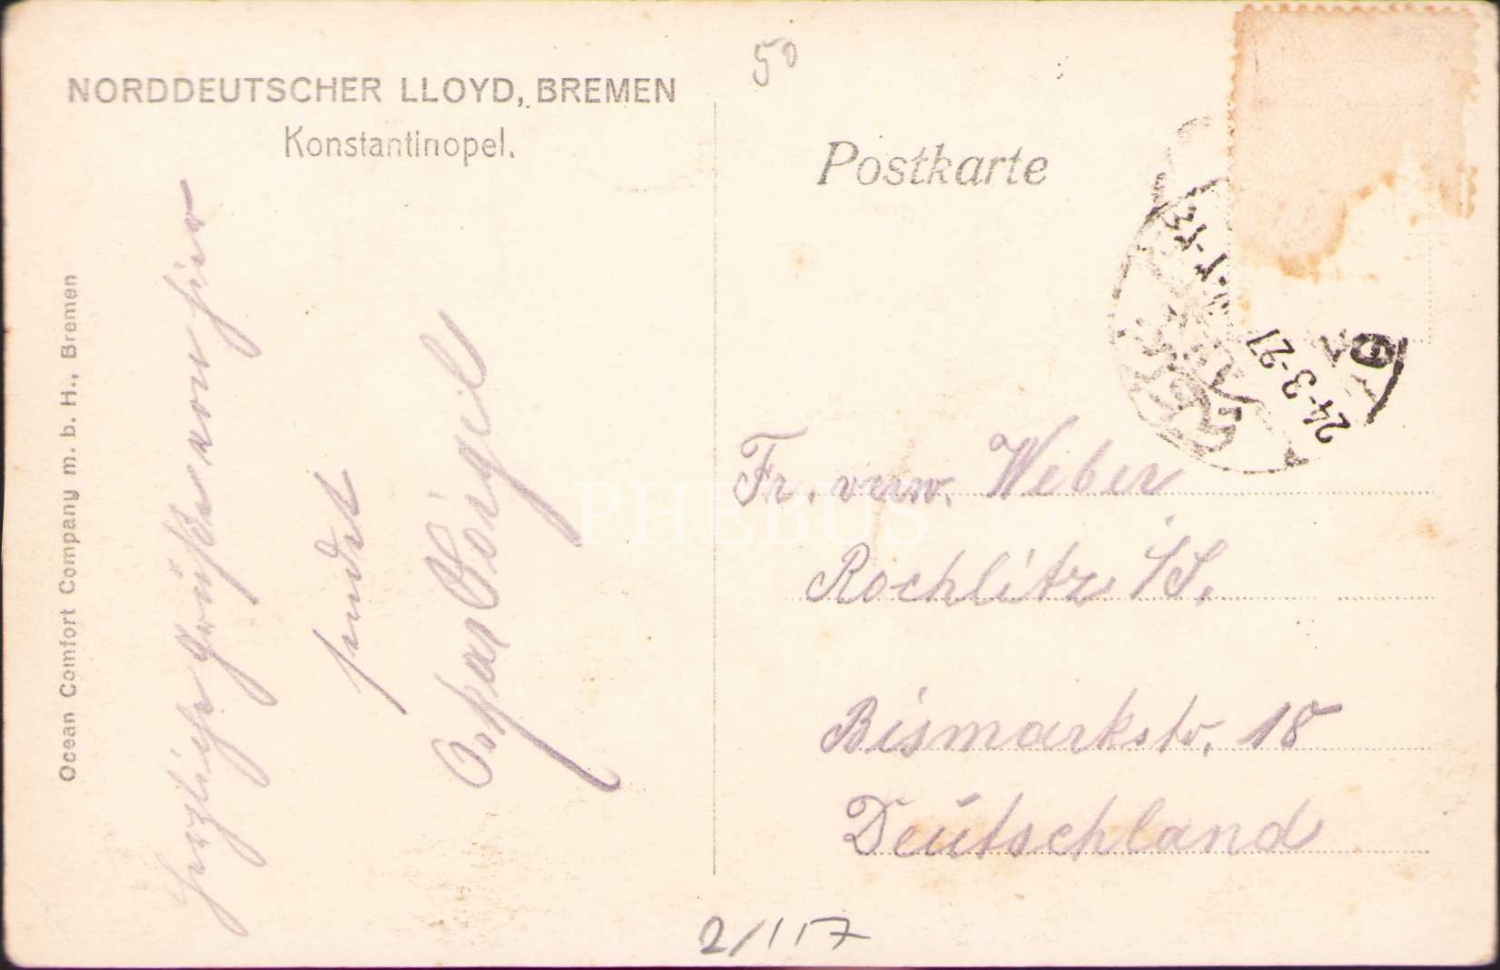 50
NORDDEUTSCHER LLOYD, BREMEN
Konstantinopel.
Postkarte
24-3-27
6
Ocean Comfort Company m. b. H., Bremen
Herzliche Grüße von hier
sendet
Oskar
Fr. verw. Weber
Rochlitz i/S.
Bismarkstr. 18
Deutschland
PHEBUS
2/117